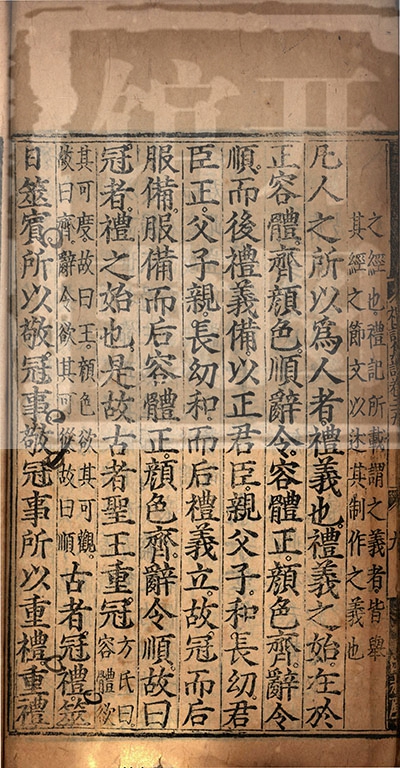 之經也禮記所載謂之義者皆舉
其經之節文以述其制作之義也
凡人之所以爲人者禮義也禮義之始在於
正容體齊顏色順辭令容體正顏色齊辭令
順而後禮義備以正君臣親父子和長幼君
臣正父子親長幼和而后禮義立故冠而后
服備服備而后容體正顏色齊辭令順故曰
冠者禮之始也是故古者聖王重冠
方氏曰
容體欲
其可度故曰正顏色欲其可觀
故曰齊辭令欲其可從故曰順
古者冠禮筮
日筮賓所以敬冠事敬冠事所以重禮重禮